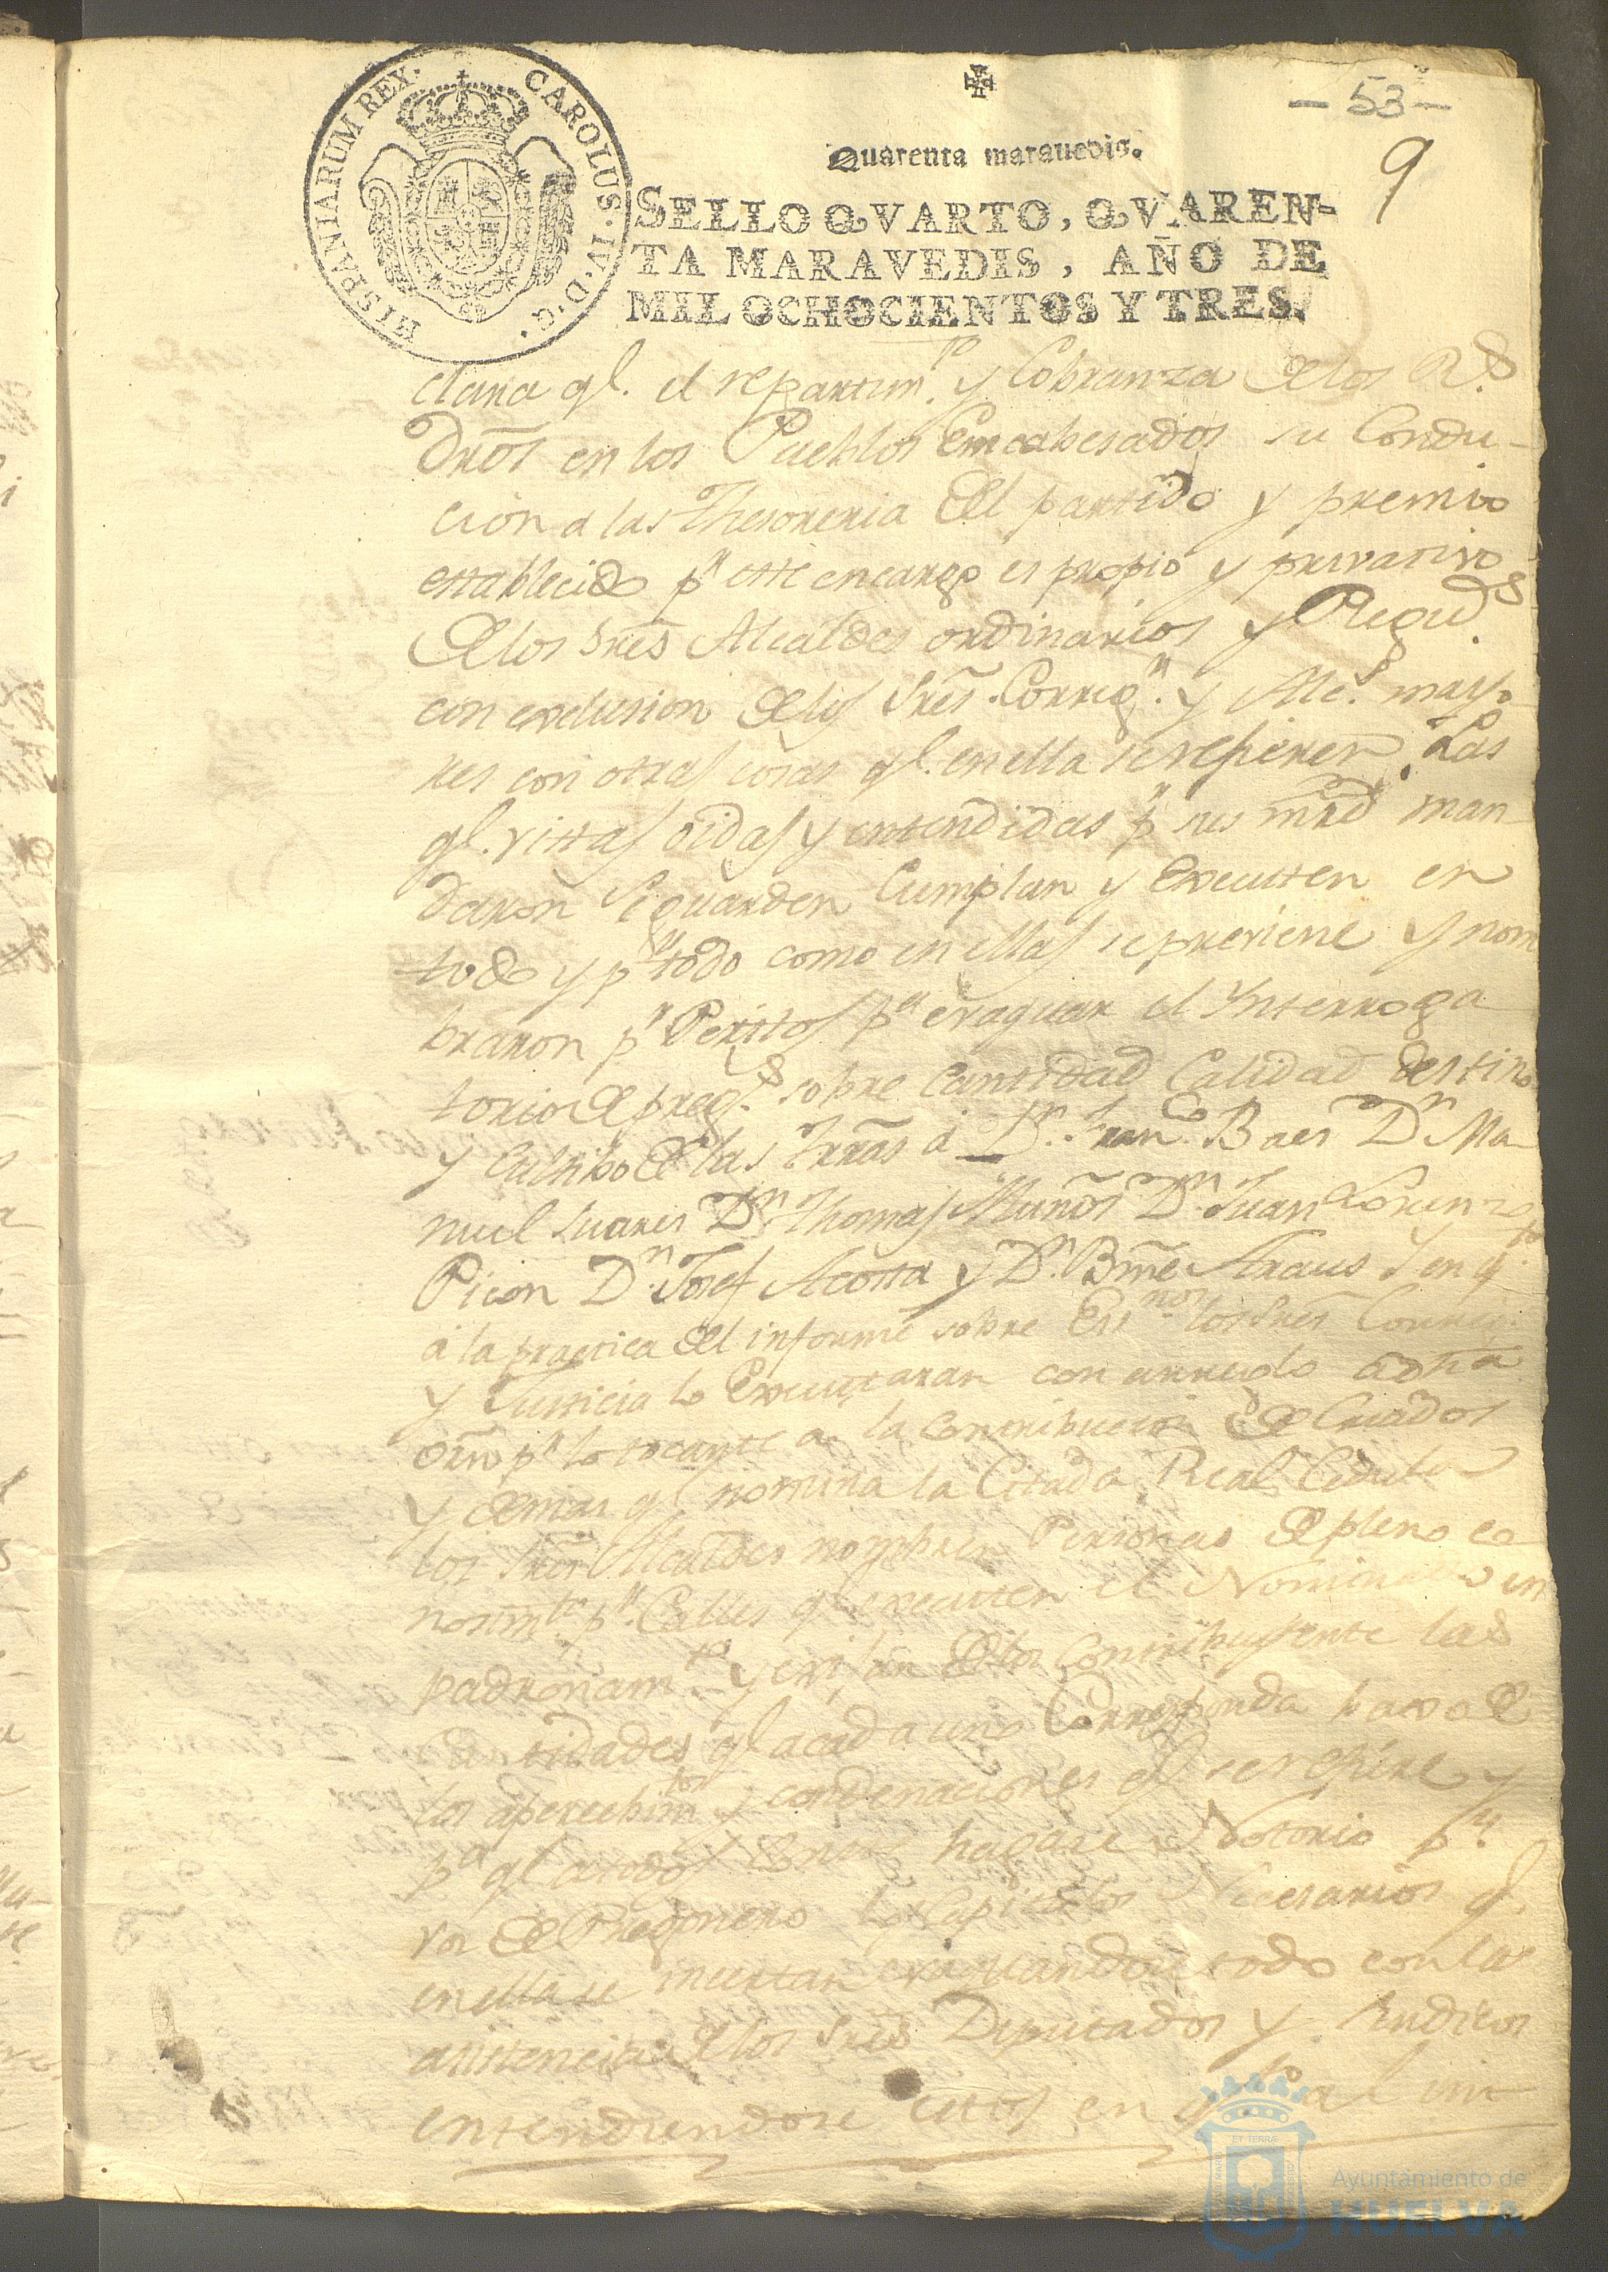 HISPANIARUM REX. CAROLUS. IV. D. G.
- 53 -
9
Quarenta maravedis.
SELLO QVARTO, QVAREN-
TA MARAVEDIS, AÑO DE
MIL OCHOCIENTOS Y TRES.
clara ql. el repartim.to y Cobranza de los R.s
Dros en los Pueblos Encabesados su Condu-
cion a las Thesoreria del partido y premio
establecido pr este encargo es propio y privativo
de los Sres Alcaldes ordinarios y Regid.s
con exclusion de los Sres. Correg.rs y Alc.s mayo
res con otras cosas ql. en ella se refieren. Las
ql. vistas oidas y entendidas pr sus mrd man
daron se guarden Cumplan y Executen en
todo y pr todo como en ellas se previene y nom
braron pr Peritos pa evaquar el Ynterroga
torio de preg.s sobre Cantidad Calidad destino
y cultibo de las trras á Dn. Franco. Baes Dn Ma
nuel Suares Dn. Thomas Muños Dn. Juan Lorenzo
Picon Dn. Josef Acosta y Dn. Bme Araus Y en qto
á la practica del informe sobre Essnos los Sres Correg.
y Justicia lo Executaran con arreglo a dha
orn pr lo tocante a la Contribucion de Criados
y demas ql nomina la Citada Real Cedula
los Sres Alcaldes nombren Personas de pleno co
nosimto pr Calles ql executen el Nominal en
padronamto y exijan de los Contribuyente las
Cantidades ql a cada uno Corresponda baxo de
los apercebimtos y condenaciones ql se refiere y
pa ql a todos Conste hagase Notorio pr
vos de Pregonero los Capitulos Necesarios ql.
en ella se incertan evaquandose todo con la
asistencia de los Sres Deputados y Sindicos
entendiendose estos en qto al im
Ayuntamiento de
HUELVA